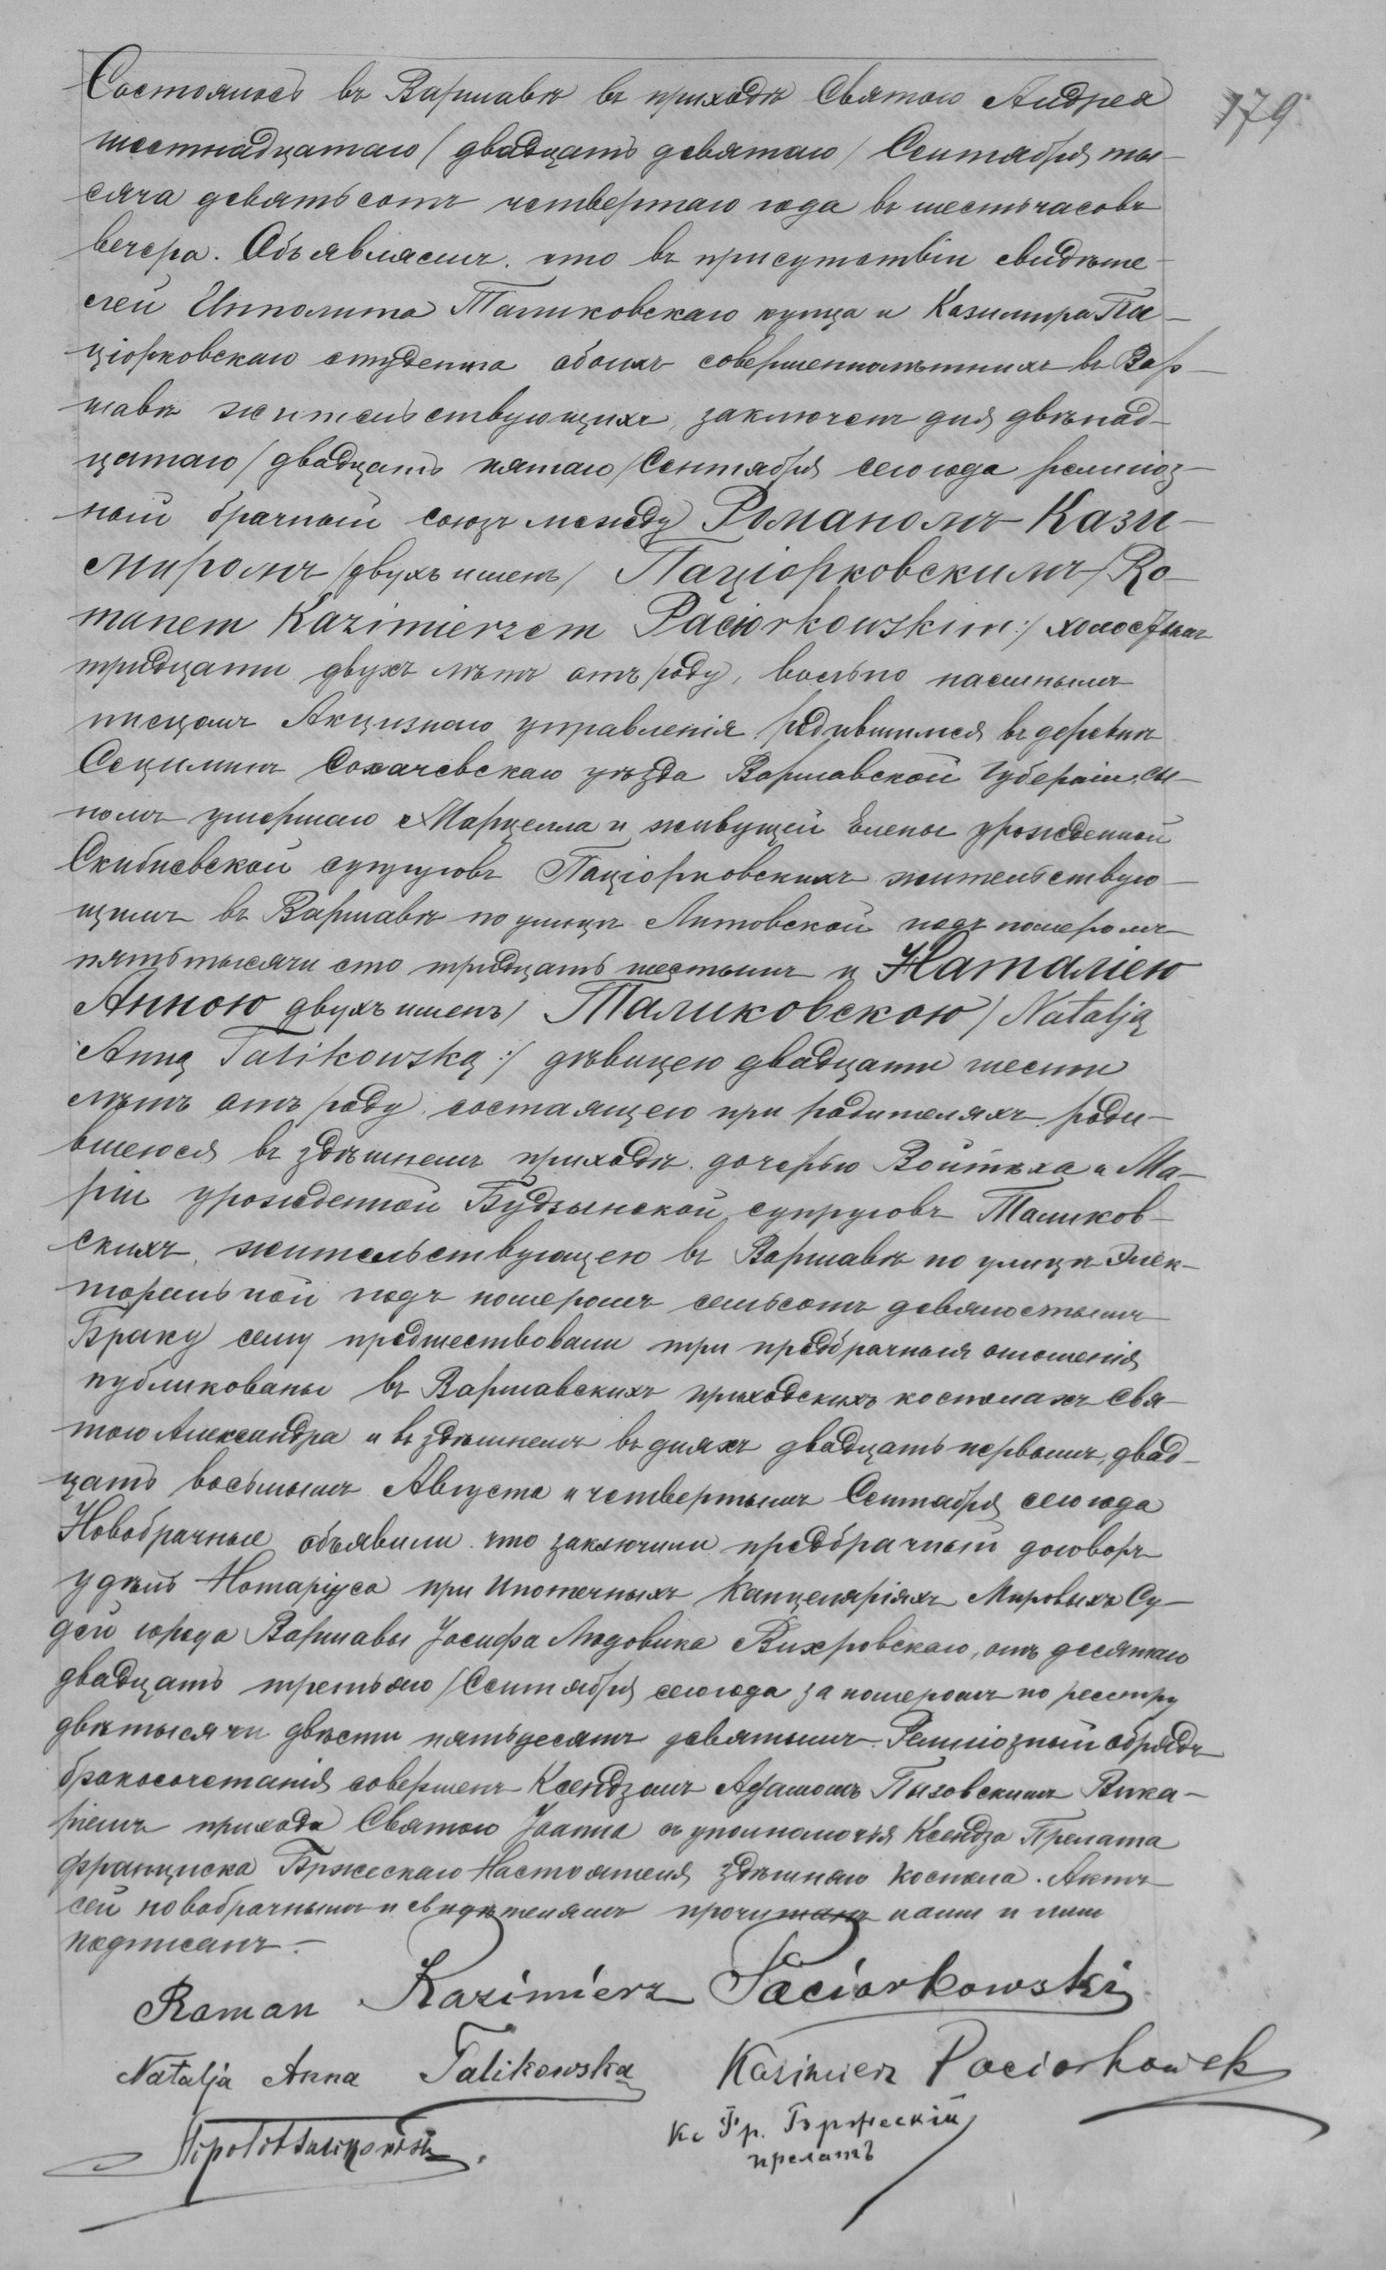 179
Состоялось въ Варшавѣ въ приходѣ Святого Андрея
шестнадцатаго / двадцать девятаго / Сентября ты-
сяча девятьсотъ четвертаго года въ шесть часовъ
вечера. Объявляемъ, что въ присутствіи свидѣте-
лей Ипполита Таликовскаго купца и Казимира Па-
ціорковскаго студента обоихъ совершеннолѣтнихъ въ Вар-
шавѣ жительствующихъ, заключенъ дня двѣнад-
цатаго / двадцать пятаго / Сентября сего года религіоз-
ный брачный союзъ между Романомъ Кази-
миромъ /двухъ именъ/ Паціорковскимъ /Ro-
manem Kazimierzem Paciorkowskim:/ холостымъ
тридцати двухъ лѣтъ отъ роду, вольно наемнымъ
писцомъ Акцизнаго управленія, родившимся въ деревнѣ
Сецыминъ Сохачевскаго уѣзда Варшавской Губерніи, сы-
номъ умершаго Марцелла и живущей Елены урожденной
Скибневской супруговъ Паціорковскихъ жительствую-
щимъ въ Варшавѣ по улицѣ Литовской подъ номеромъ
пять тысячи сто тридцать шестымъ и Наталіею
Анною двухъ именъ/ Таликовскою / Natalją
Anną Talikowską :/ дѣвицею двадцати шести
лѣтъ отъ роду, состаящею при родителяхъ, роди-
вшеюся въ здѣшнемъ приходѣ, дочерью Войтѣха и Ма-
ріи урожденной Будзынской супруговъ Таликов-
скихъ, жительствующею въ Варшавѣ по улицѣ Элек-
торальной подъ номеромъ семьсотъ девяностымъ
Браку сему предшествовали три предбрачныя оглашенія
публикованы въ Варшавскихъ приходскихъ костелахъ Свя-
того Александра и въ здѣшнемъ въ дняхъ двадцать первымъ, двад-
цать восьмымъ Августа и четвертымъ Сентября сего года
Новобрачные объявили что заключили предбрачный договоръ
у дѣлъ Нотаріуса при Ипотечныхъ Канцеляріяхъ Мировыхъ Су-
дей города Варшавы Іосифа Людовика Вихровскаго, отъ десятаго
двадцать третьяго / Сентября сего года за номеромъ по реестру
двѣ тысячи двѣсти пятьдесятъ девятымъ. Религіозный обрядъ
бракосочетанія совершенъ Ксендзомъ Адамомъ Пызовскимъ Вика-
ріемъ прихода Святого Іоанна съ уполномочія Ксендза Прелата
Франциска Бржескаго Настоятеля здѣшняго костела. Актъ
сей новобрачнымъ и свидѣтелямъ прочитанъ нами и ими
подписанъ.-
Roman Kazimierz Paciorkowski
Natalja Anna Talikowska Kazimierz Paciorkowski
Hipolit Talikowski. Кс Фр. Бржескій
прелатъ